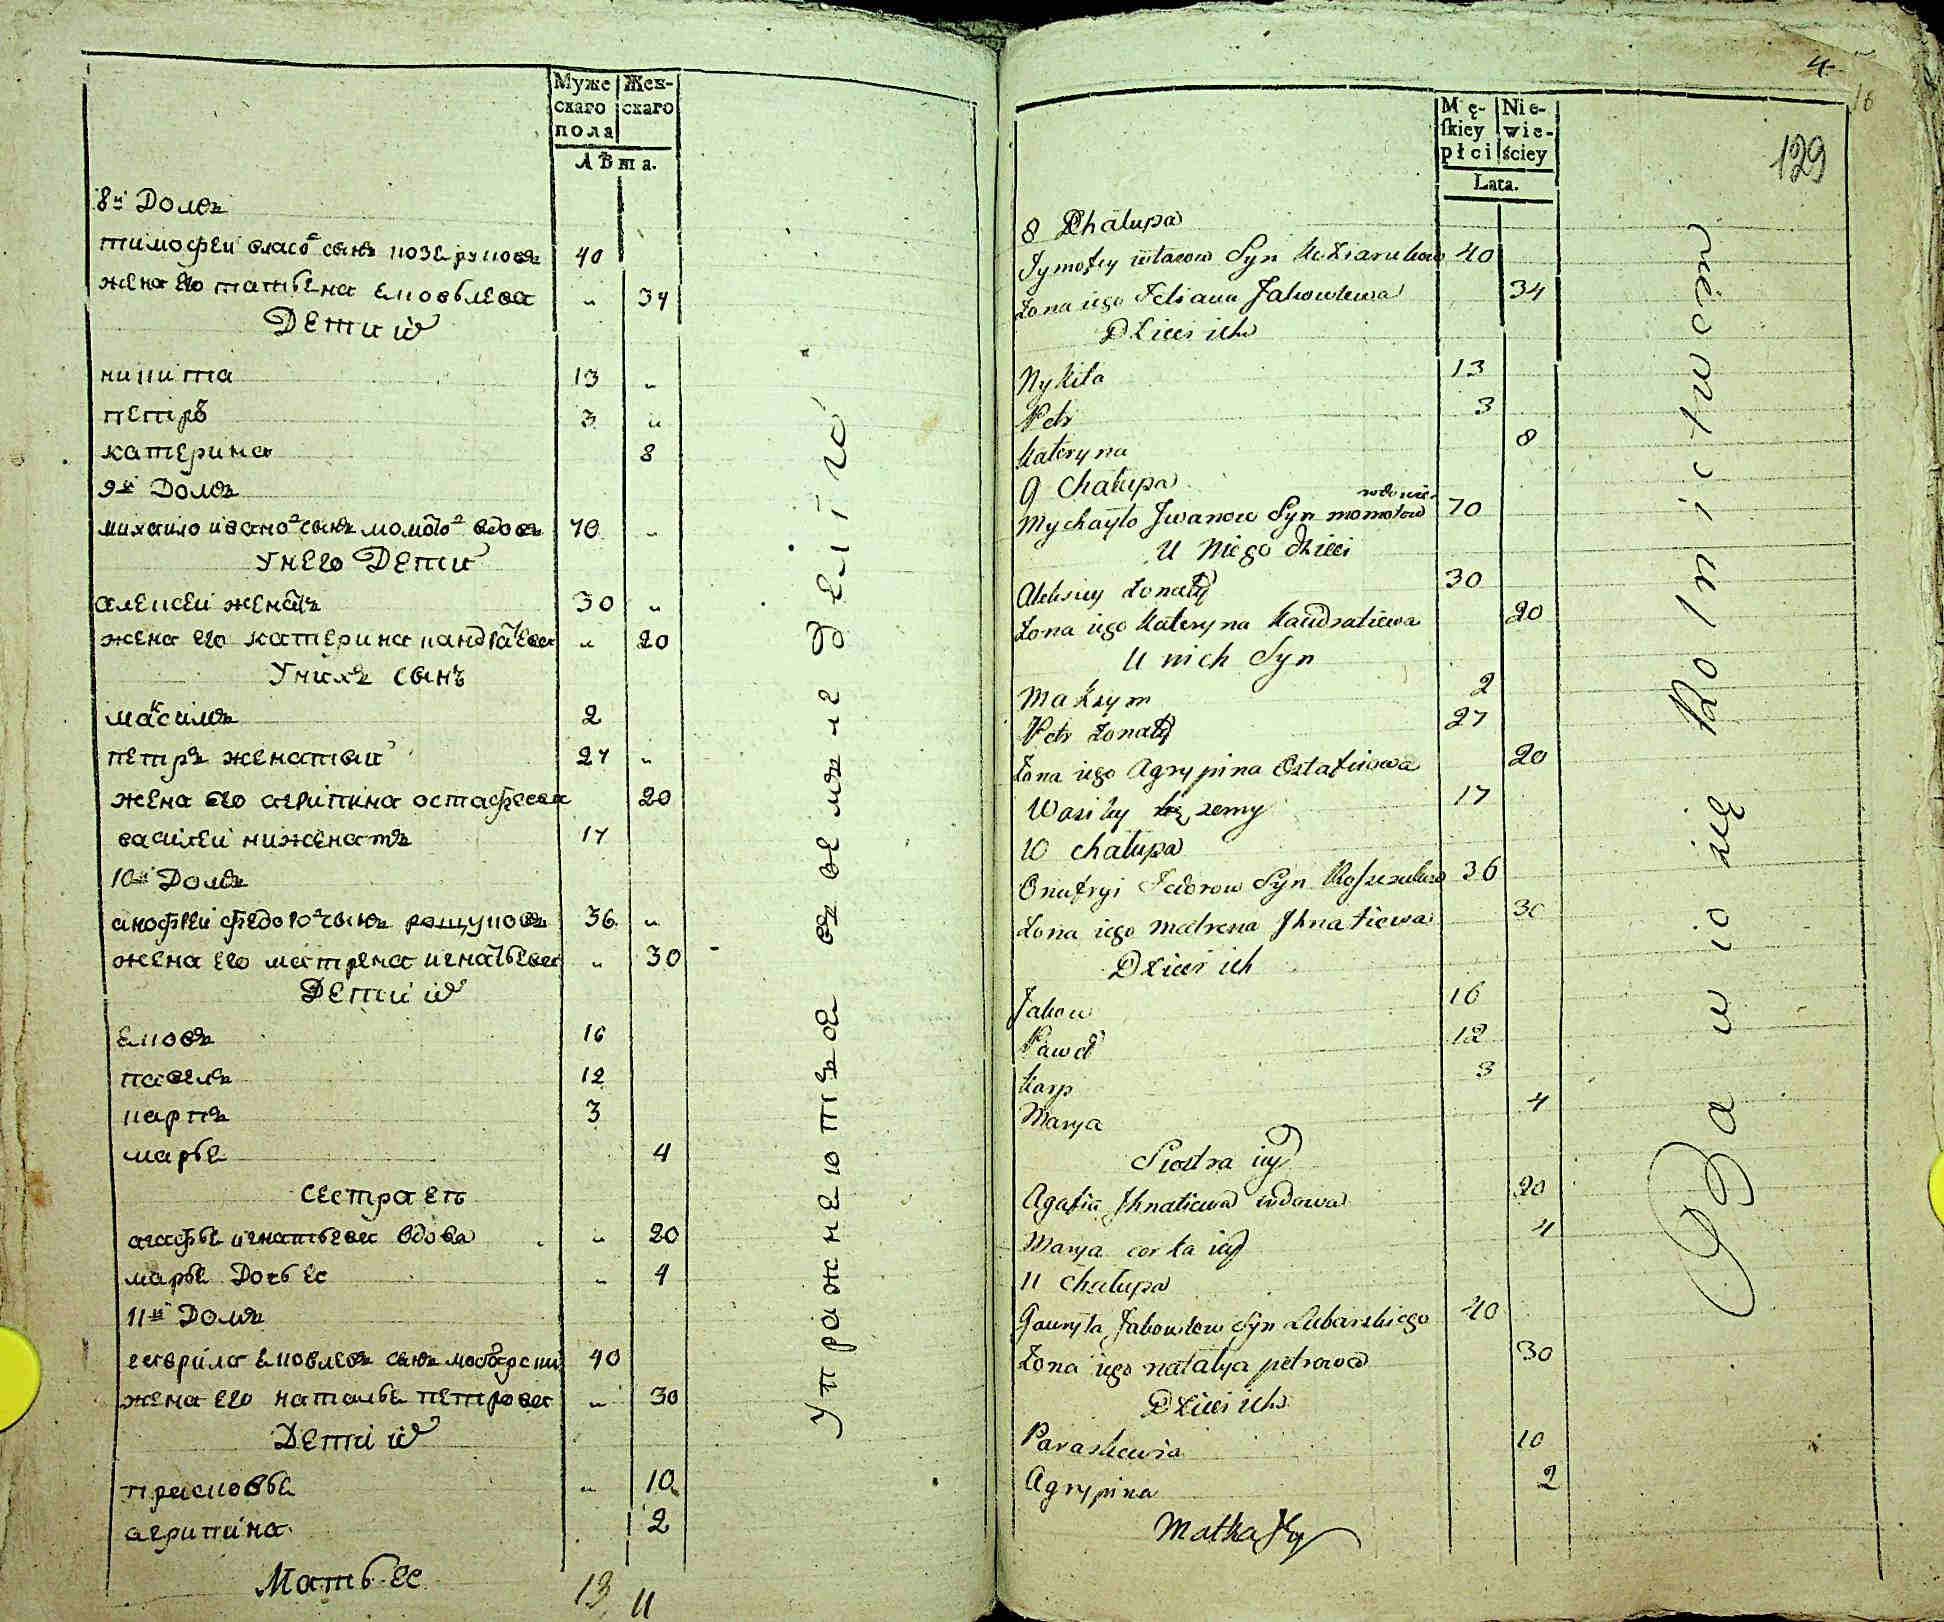 Муже
скаго
пола
Жен-
скаго
Лѣта.
8й Домъ
тимофеи власо в сынъ козеруковъ 40
жена его татьена ековлева „ 34
Дети их
никита 13 „
петръ 3 „
катерина 8
9й Домъ
михаило ивано в сынъ момото в вдовъ 70 „
У него Дети
алексеи женатъ 30 „
жена его катерина кандратева „ 20
У них сынъ
максимъ 2
петръ женатыи 27 „
жена его агрипина остафева 20
василеи нижен ат 17
10й Домъ
анофреи федоро в сынъ рощуковъ 36 „
жена его матрена игнатьева „ 30
Дети их
еков 16
павелъ 12
карпъ 3
марье 4
сестра еѣ
агафье игнатьева вдова „ 20
марье Дочь ее „ 4
11й Домъ
гаврила ековлевъ сынъ 40
жена его наталье петрова „ 30
Дети их
прасковье „ 10
агрипина 2
Мать ее
13 11
Упражнеютъца въ земледелiи
4
16
129
Mę-
skiey
płci
Nie-
wie-
ściey
Lata.
8 Chałupa
Tymofey własow Syn Koziarukow 40
Żona iego Tetiana Jakowlewa 34
Dzieci ich
Nykita 13
Petr 3
Kateryna 8
9 Chałupa
wdowiec
Mychayło Jwanow Syn momotow 70
U Niego dzieci
Aleksiey żonaty 30
Żona iego Kateryna Kandratiewa 20
U nich Syn
Maksym 2
Petr żonaty 27
Żona iego Agrypina Ostafiewa 20
Wasiley 17
10 chałupa
Onufryi Fedorow Syn Roszczukow 36
Żona iego matrena Jhnatiewa 30
Dzieci ich
Jakow 16
Paweł 12
Karp 3
Marya 4
Siostra iey
Agafia Jhnatiewa wdowa 20
Marya corka iey 4
11 Chałupa
Gawryła Jakowlew Syn Lubarskiego 40
Żona iego natalya petrowa 30
Dzieci ich
Paraskewia 10
Agrypina 2
Matka Jey
Bawio się Rolnictwem